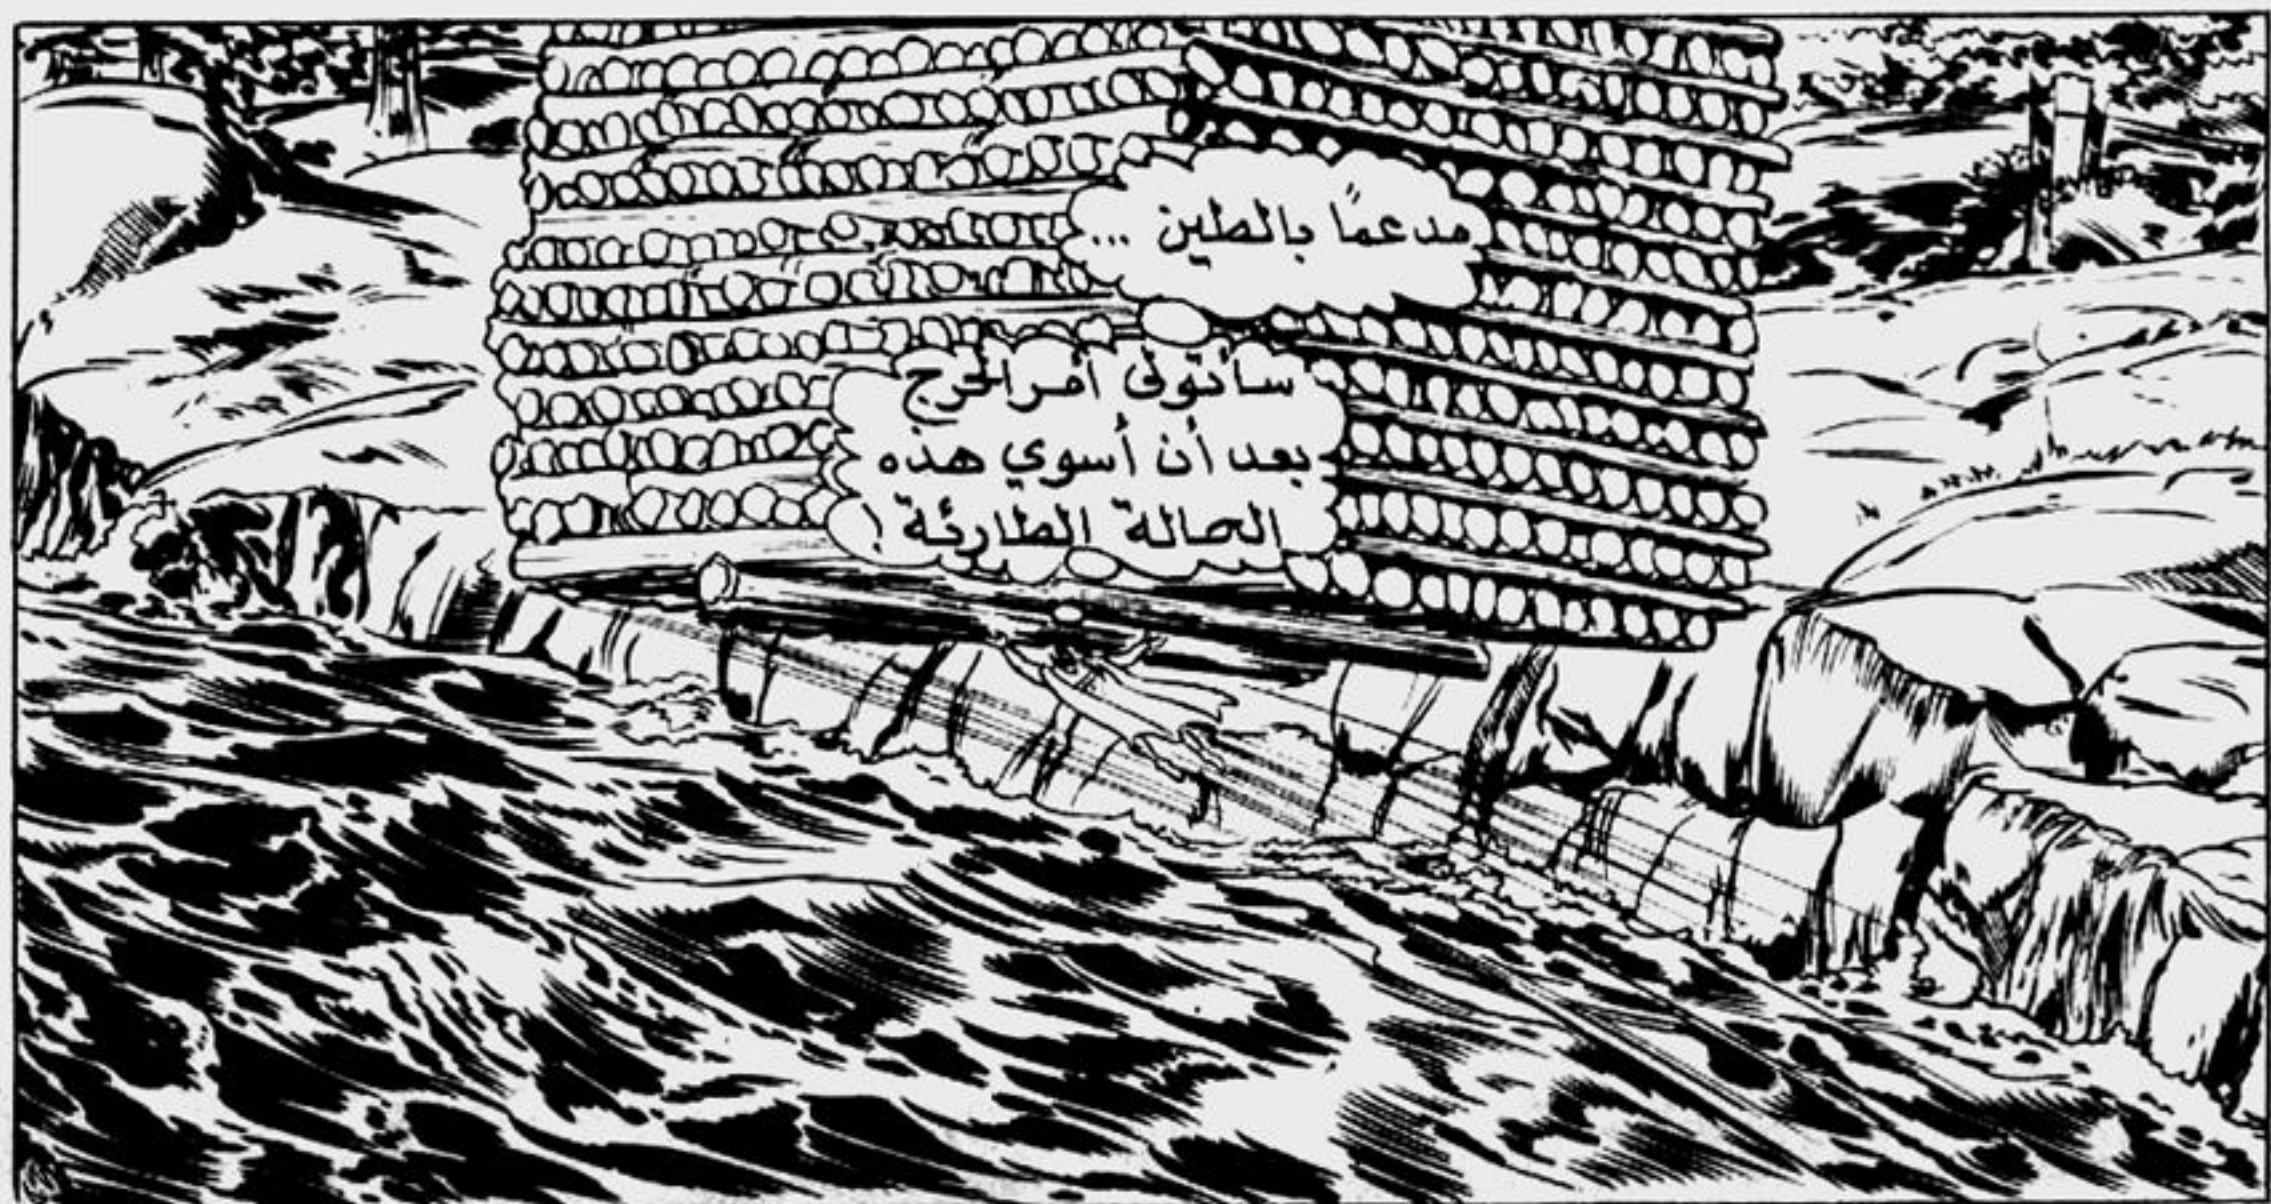 مدعمًا بالطين ...
سأتولى أمر الحرج
بعد أن أسوي هذه
الحالة الطارئة !